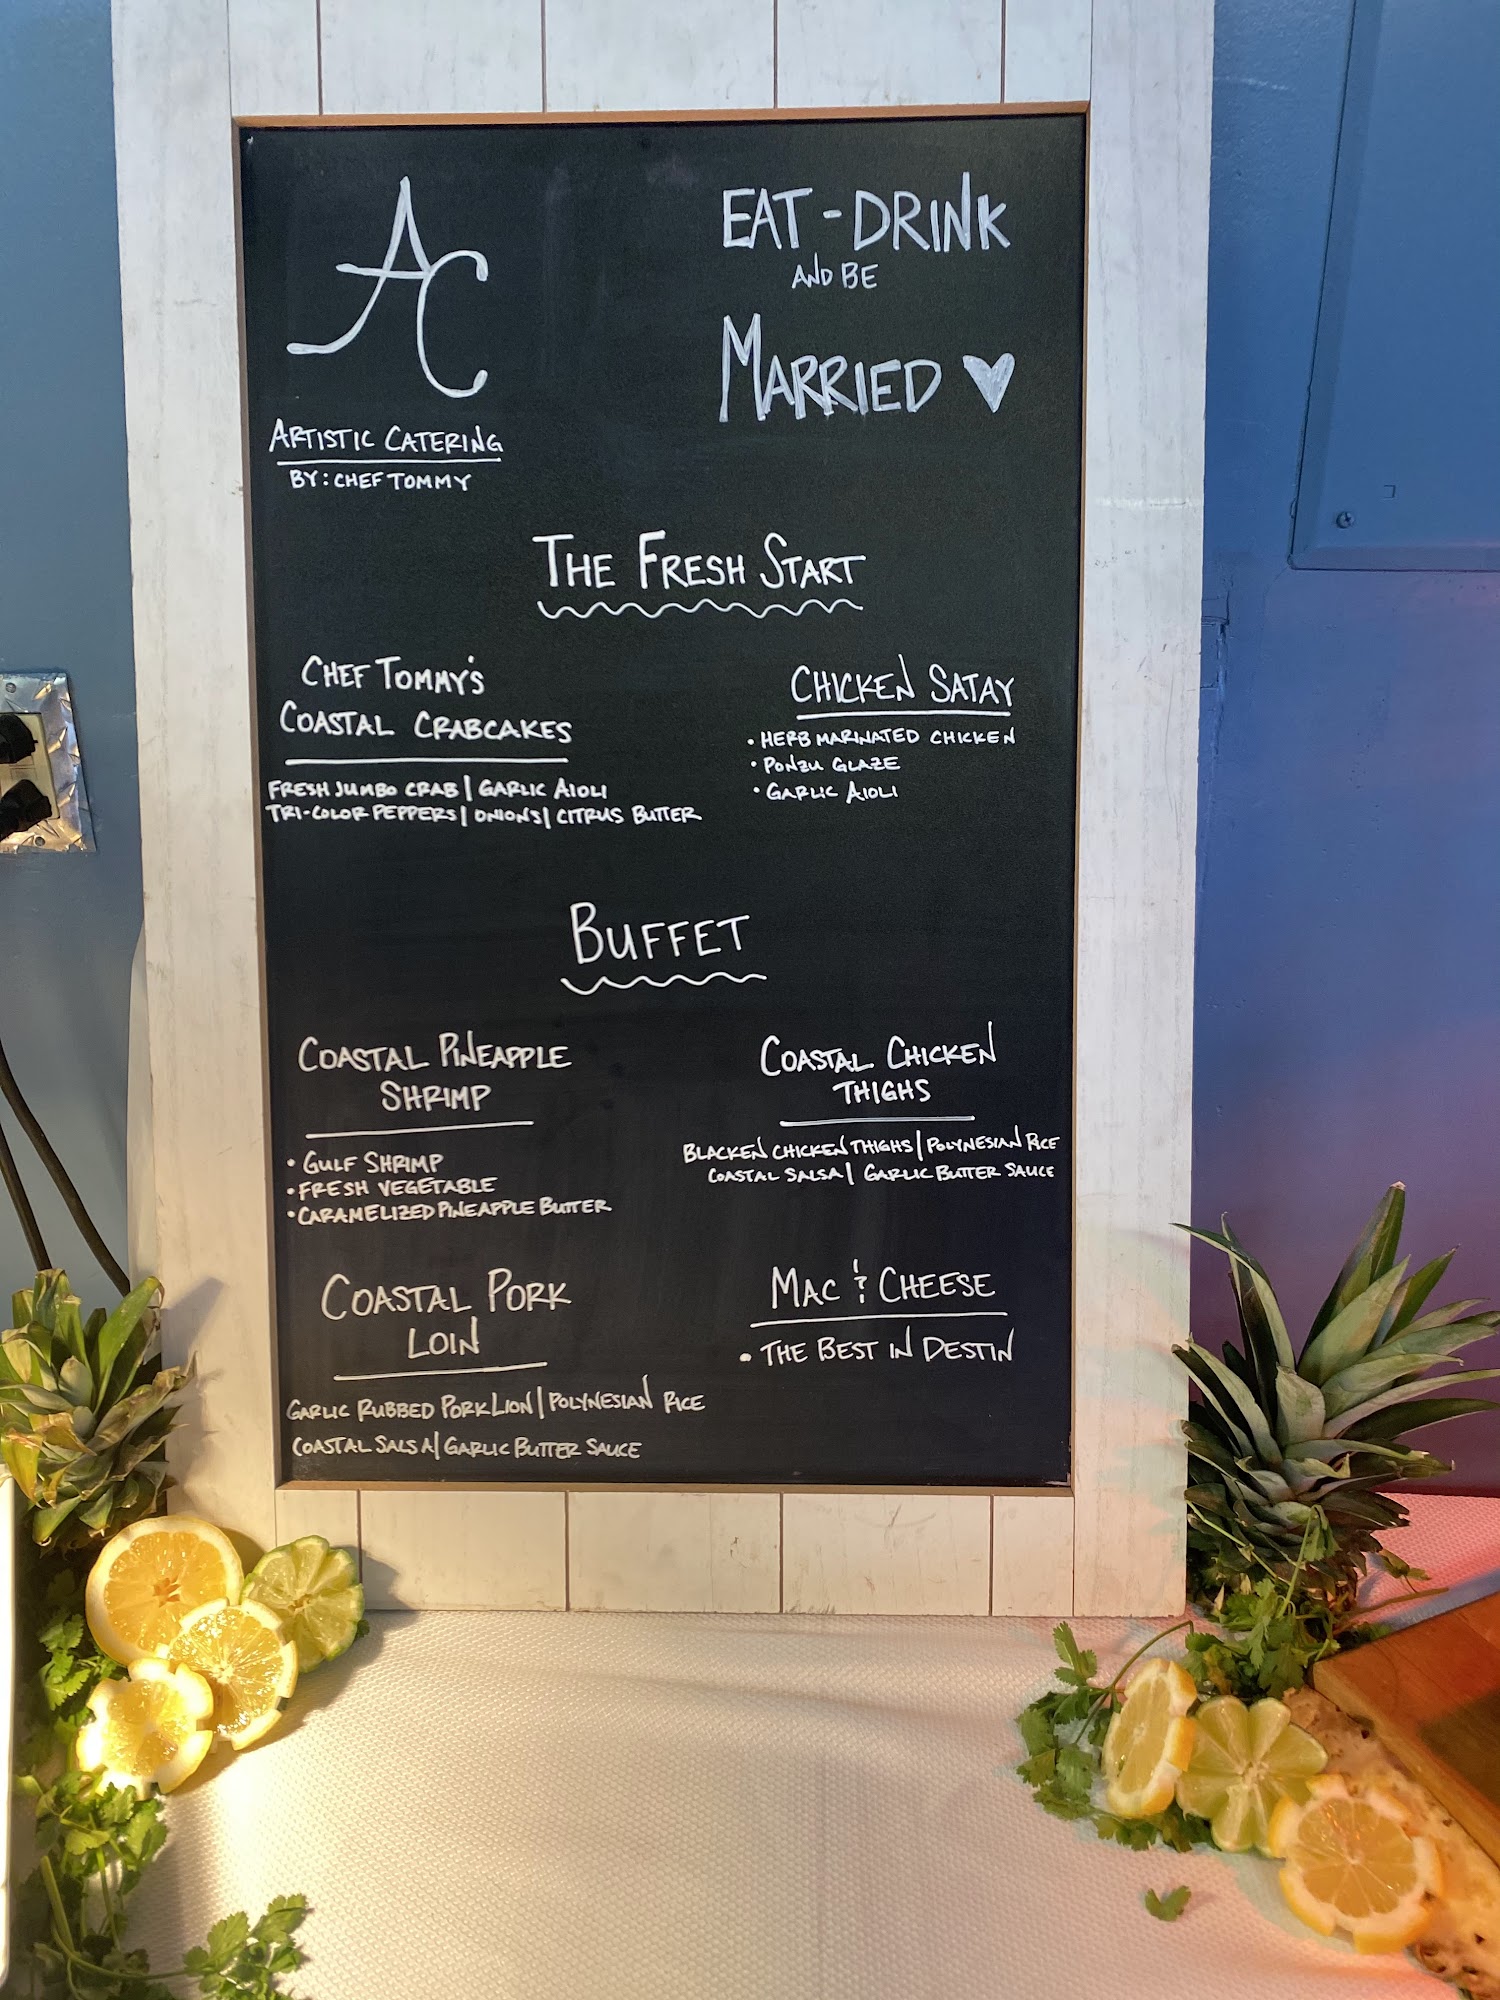 AC
ARTISTIC CATERING
BY: CHEF TOMMY
EAT - DRINK
AND BE
MARRIED ♥
THE FRESH START
CHEF TOMMY'S
COASTAL CRABCAKES
FRESH JUMBO CRAB | GARLIC AIOLI
TRI-COLOR PEPPERS | ONIONS | CITRUS BUTTER
CHICKEN SATAY
• HERB MARINATED CHICKEN
• PONZU GLAZE
• GARLIC AIOLI
BUFFET
COASTAL PINEAPPLE
SHRIMP
• GULF SHRIMP
• FRESH VEGETABLE
• CARAMELIZED PINEAPPLE BUTTER
COASTAL CHICKEN
THIGHS
BLACKEN CHICKEN THIGHS | POLYNESIAN RICE
COASTAL SALSA | GARLIC BUTTER SAUCE
COASTAL PORK
LOIN
GARLIC RUBBED PORK LION | POLYNESIAN RICE
COASTAL SALSA | GARLIC BUTTER SAUCE
MAC & CHEESE
• THE BEST IN DESTIN